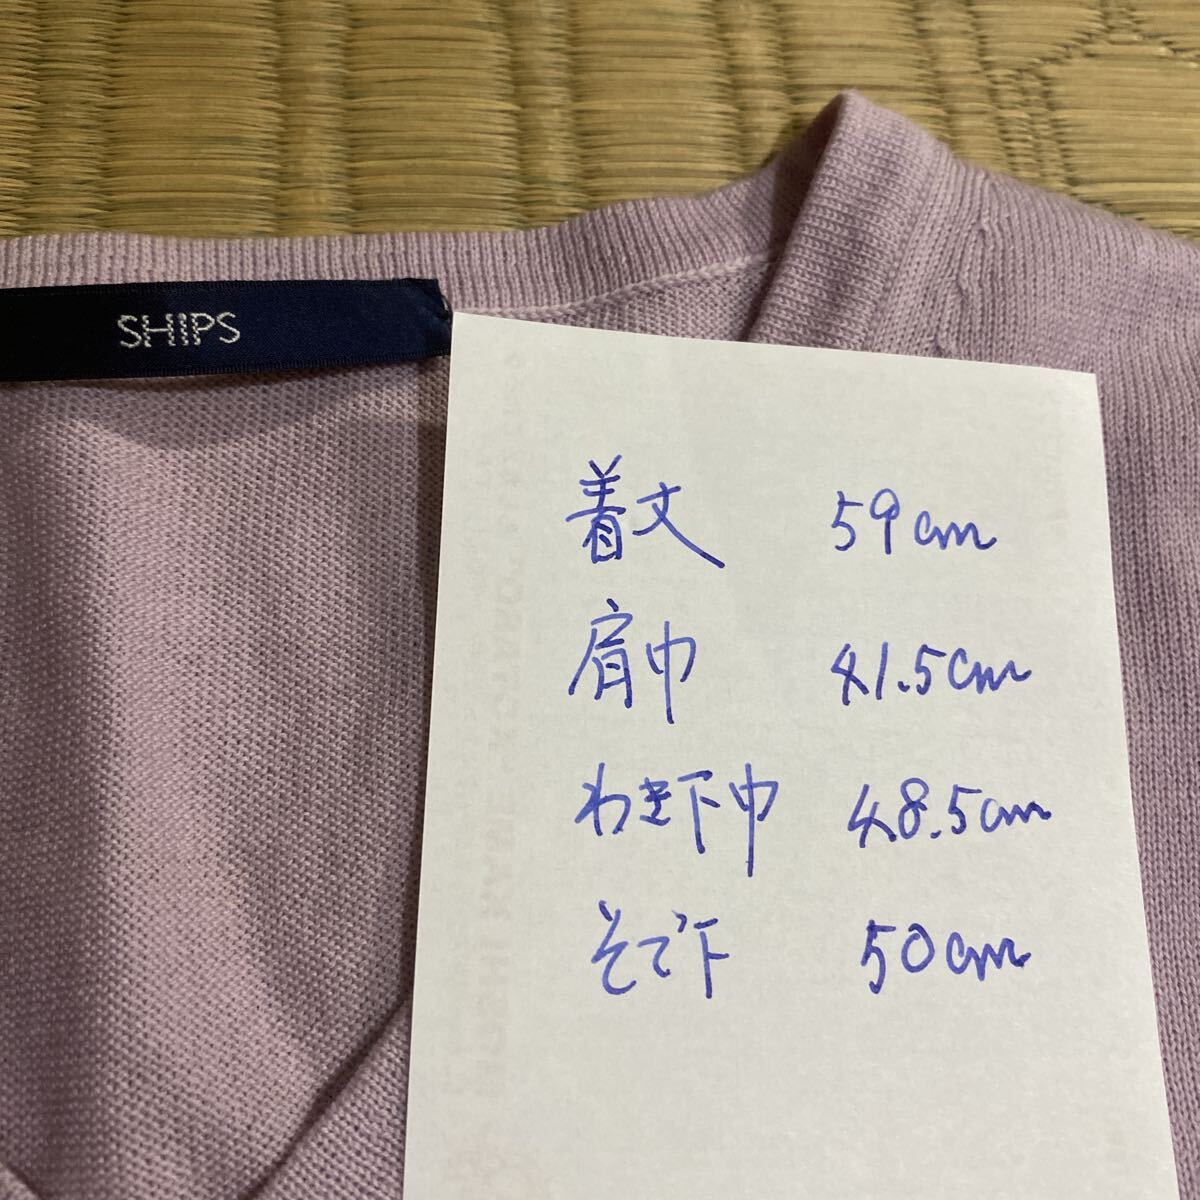 SHIPS
着丈 59cm
肩巾 41.5cm
わき下巾 48.5cm
そで下 50cm